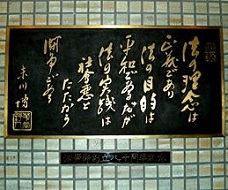 法の理念は
正義であり
法の目的は
平和であるだが
法の実践は
社会悪と
たたかう
闘争である
末川博